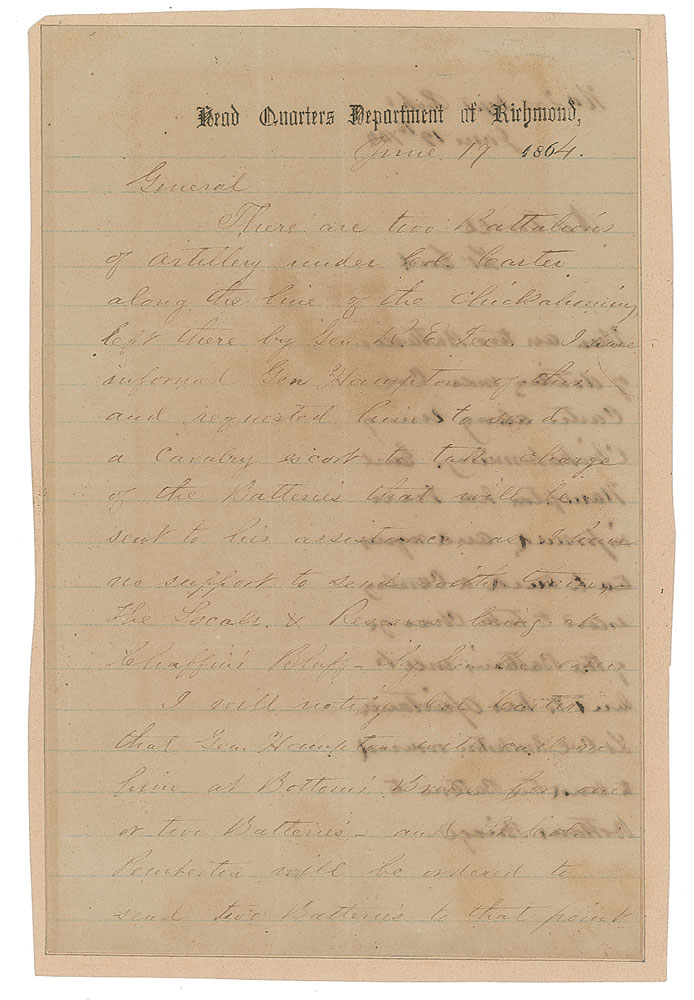 Head Quarters Department of Richmond,
June 19 1864.
General
There are two Battalions
of Artillery under Col. Carter
along the line of the Chickahominy
left there by Gen R. E. Lee. I have
informed Gen Hampton of this
and requested him to send
a Cavalry escort to take charge
of the Batteries that will be
sent to his assistance, as I have
no support to send with them,
The Locals & Reserves being at
Chaffin's Bluff
I will notify Col Carter
that Gen. Hampton will call on
him at Bottom's Bridge for one
or two Batteries - and
Pemberton will be ordered to
send two Batteries to that point